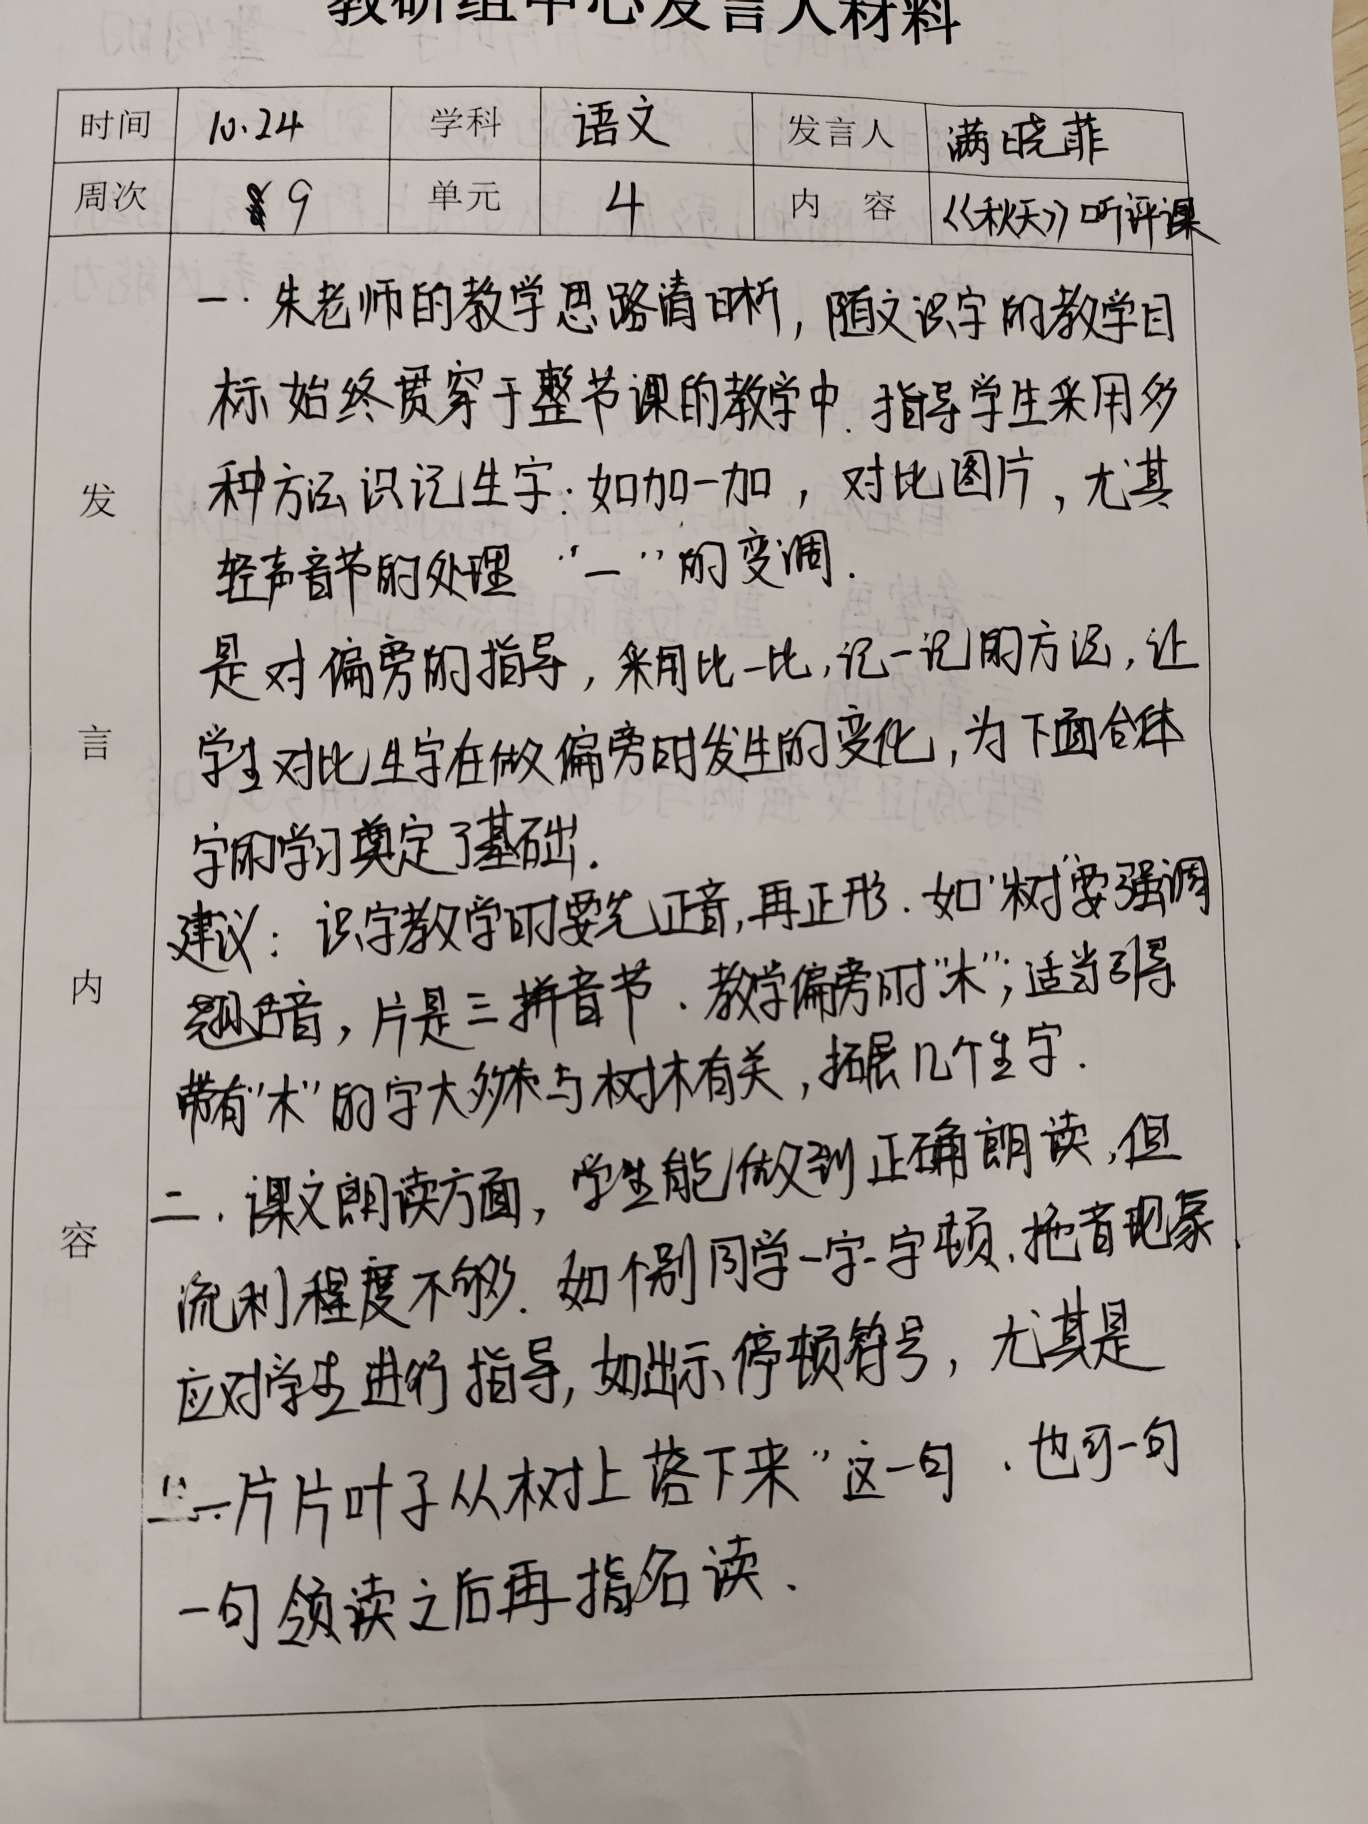 教研组中心发言人材料
时间 10.24 学科 语文 发言人 满晓菲
周次 9 单元 4 内容 《秋天》听评课
发言内容
一.朱老师的教学思路清晰,随文识字的教学目
标始终贯穿于整节课的教学中.指导学生采用多
种方法识记生字:如加一加,对比图片,尤其
轻声音节的处理 “一”的变调.
是对偏旁的指导,采用比一比,记一记的方法,让
学生对比生字在做偏旁时发生的变化,为下面合体
字的学习奠定了基础.
建议:识字教学时要先正音,再正形.如“树”要强调
翘舌音,片是三拼音节.教学偏旁时“木”;适当引导
带有“木”的字大多木与树木有关,拓展几个生字.
二.课文朗读方面,学生能做到正确朗读,但
流利程度不够.如个别同学一字一字顿.拖音现象.
应对学生进行指导,如出示停顿符号,尤其是
“一片片叶子从树上落下来”这一句.也可一句
一句领读之后再指名读.